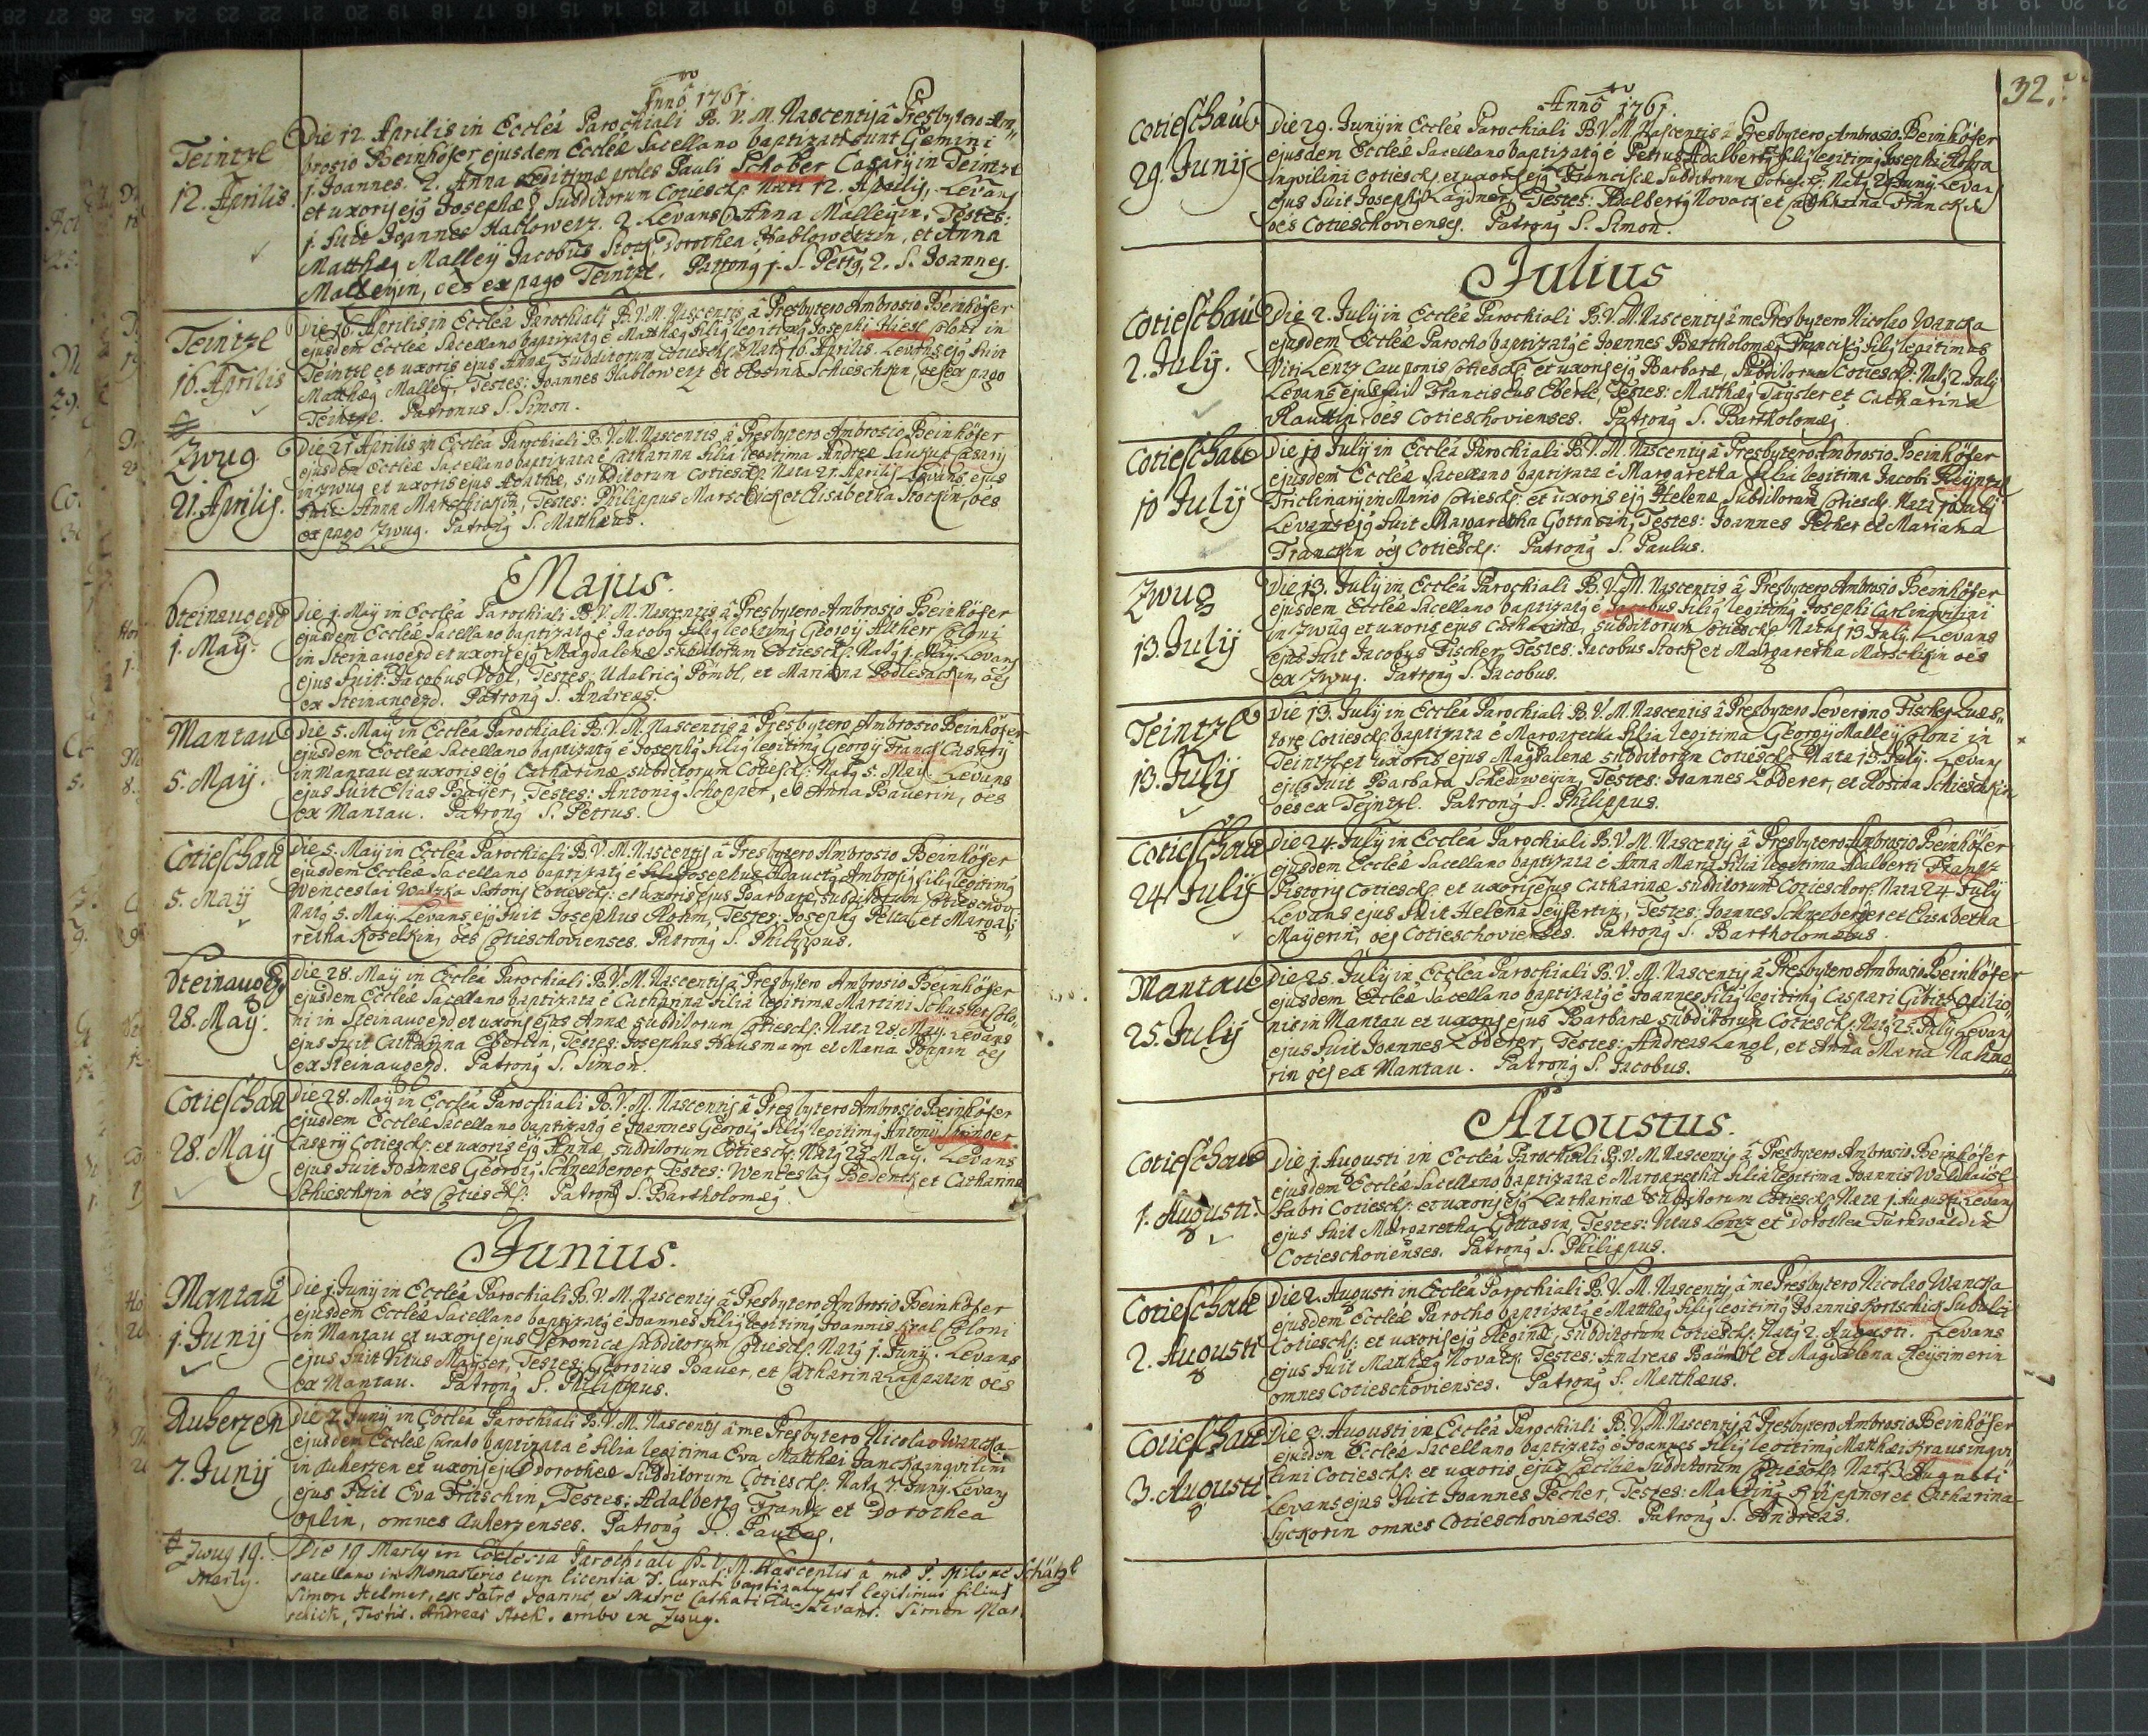 Anno 1761.
Teintzl
12. Aprilis.
Die 12. Aprilis in Eccleâ Parochiali B. V. M. Nascentis â Presbytero Am„
brosio Beinhöfer ejusdem Eccleæ Sacellano baptizati sunt Gemini
1. Joannes. 2. Anna legitimæ proles Pauli Schober Casarij in Teintzl
et uxoris ejg Josephæ Subditorum Cotiesch: Nati 12. Aprilis. Levans
1. fuit Joannes Hablowetz. 2. Levans Anna Malleyin, Testes:
Matthæg Malley Jacobus Stock Dorothea Hablowetzin, et Anna
Malleyin, oēs ex pago Teintzl. Patrong 1. S. Petrg, 2. S. Joannes.
Teintzl
16. Aprilis
Die 16. Aprilis in Eccleâ Parochiali B. V. M. Nascentis â Presbytero Ambrosio Beinhöfer
ejusdem Eccleæ Sacellano baptizatg ē Matthæg filig legitimg Josephi Coloni in
Teintzl et uxoris ejus Annæ subditorum Cotiesch: Natg 16. Aprilis. Levans ejg fuit
Matthæg Malley, Testes: Joannes Hablowetz et Rosina Schieschkin, oēs ex pago
Teintzl. Patronus S. Simon.
Zwug
21. Aprilis.
Die 21 Aprilis in Eccleâ Parochiali B. V. M. Nascentis â Presbytero Ambrosio Beinhöfer
ejusdem Eccleæ Sacellano baptizata ē Catharina filia legitima Andreæ Casarij
in Zwug et uxoris ejus Agathæ, subditorum Cotiesch: Nata 21. Aprilis Levans ejus
fuit Anna Marschickin, Testes: Philippus Marschick et Elisabetha Stockin, oēs
ex pago Zwug. Patrong S. Matthæus.
Majus.
Steinaugezd
1. May.
Die 1. May in Eccleâ Parochiali B. V. M. Nascentis â Presbytero Ambrosio Beinhöfer
ejusdem Eccleæ Sacellano baptizatg ē Jacobg filig legitimg Georgij Altherr Coloni
in Steinaugezd et uxoris ejg Magdalenæ subditorum Cotiesch: Natg 1. May. Levans
ejus fuit: Jacobus Vogl, Testes: Udalricg Pömbl, et Mariana Podlesackin, oēs
ex Steinaugezd. Patrong S. Andreas.
Mantau
5. May.
Die 5. May in Eccleâ Parochiali B. V. M. Nascentis â Presbytero Ambrosio Beinhöfer
ejusdem Eccleæ Sacellano baptizatg ē Josephg filig legitimg Georgij Franck Casarij
in Mantau et uxoris ejg Catharinæ subditorum Cotiesch: Natg 5. May. Levans
ejus fuit Elias Bayer, Testes: Antonig Schopper, et Anna Bauerin, oēs
ex Mantau. Patrong S. Petrus.
Cotieschau
5. May
Die 5. May in Eccleâ Parochiali B. V. M. Nascentis â Presbytero Ambrosio Beinhöfer
ejusdem Eccleæ Sacellano baptizatg ē Josephus Adauctg Ambrosig filig legitimg
Wenceslai Watzka Sartoris Cotiesch: et uxoris ejus Barbaræ, subditorum Cotieschov:
Natg 5. May. Levans ejg fuit Josephus Rohm, Testes: Josephg Peltal et Marga„
retha Koselkin, oēs Cotieschovienses. Patrong S. Philippus.
Steinaugezd
28. May.
Die 28. May in Eccleâ Parochiali B. V. M. Nascentis â Presbytero Ambrosio Beinhöfer
ejusdem Eccleæ Sacellano baptizata ē Catharina filia legitima Martini Schuster Colo„
ni in Steinaugezd et uxoris ejus Annæ subditorum Cotiesch: Nata 28. May. Levans
ejus fuit Catharina Eberlin, Testes: Josephus Hausmann et Maria Poppin oēs
ex Steinaugezd. Patrong S. Simon.
Cotieschau
28. May
Die 28. May in Eccleâ Parochiali B. V. M. Nascentis â Presbytero Ambrosio Beinhöfer
ejusdem Eccleæ Sacellano baptizatg ē Joannes Georgig filig legitimg Antonij Springer
Casarij Cotiesch: et uxoris ejg Annæ, subditorum Cotiesch: Natg 28. May. Levans
ejus fuit Joannes Georgig Schneeberger, Testes: Wenceslag Bedenck et Catharina
Schieschkin oēs Cotiesch: Patrong S. Bartholomæg.
Junius.
Mantau
1. Junij
Die 1. Junij in Eccleâ Parochiali B. V. M. Nascentis â Presbytero Ambrosio Beinhöfer
ejusdem Eccleæ Sacellano baptizatg ē Joannes filig legitimg Joannis Kral Coloni
in Mantau et uxoris ejus Veronicæ subditorum Cotiesch: Natg 1. Junij. Levans
ejus fuit Vitus Mayser, Testes: Georgius Bauer, et Catharina Lappatin oēs
ex Mantau. Patrong S. Philippus.
Auherzen
7. Junij
Die 7. Junij in Eccleâ Parochiali B. V. M. Nascentis â me Presbytero Nicolao Wancka
ejusdem Eccleæ Curato baptizata ē filia legitima Eva Matthæi Janecka inqvilini
in Auherzen et uxoris ejus Dorotheæ Subditorum Cotiesch: Nata 7. Junij. Levans
ejus fuit Eva Fritschin, Testes: Adalbertg Frantz et Dorothea
Oplin, omnes Auherzenses. Patrong S. Paulus.
Zwug 19.
Martij.
Die 19 Martij in Ecclesia Parochiali B. V. M. Nascentis â me P. Milone Schätzl
sacellano in Monasterio cum licentia D. Curati baptizatus est legitimus filius
Simon Helmer, ex Patre Joanne, et Matre Catharina. Levans: Simon Mar„
schick, Testis. Andreas Stock. ambo ex Zwug.
32.
Anno 1761.
Cotieschau
29. Junij
Die 29. Junij in Eccleâ Parochiali B. V. M. Nascentis â Presbytero Ambrosio Beinhöfer
ejusdem Eccleæ Sacellano baptizatg ē Petrus Adalbertg filig legitimg Josephi
inqvilini Cotiesch: et uxoris ejg Franciscæ Subditorum Cotiesch: Natg 29 Junij Levans
ejus fuit Josephg Laydner, Testes: Adalbertg Novack et Catharina Franckin
oēs Cotieschovienses. Patrong S. Simon.
Julius
Cotieschau
2. July.
Die 2. July in Eccleâ Parochiali B. V. M. Nascentis â me Presbytero Nicolao Wancka
ejusdem Eccleæ Parocho baptizatg ē Joannes Bartholomæg Franciscg filig legitimus
Viti Lentz Cauponis Cotiesch: et uxoris ejg Barbaræ, Subditorum Cotiesch: Natg 2. July
Levans ejus fuit Franciscus Eberle, Testes: Matthæg Tayster et Catharina
Rauttin oēs Cotieschovienses. Patrong S. Bartholomæg.
Cotieschau
10 July
Die 10 July in Eccleâ Parochiali B. V. M. Nascentis â Presbytero Ambrosio Beinhöfer
ejusdem Eccleæ Sacellano baptizata ē Margaretha filia legitima Jacobi Reÿntzl
Triclinarij in Mōrio Cotiesch: et uxoris ejg Helenæ Subditorum Cotiesch: Nata 10 July
Levans ejg fuit Margaretha Gottasin, Testes: Joannes Pecher et Mariana
Franckin oēs Cotiesch: Patrong S. Paulus.
Zwug
13. July
Die 13. July in Eccleâ Parochiali B. V. M. Nascentis â Presbytero Ambrosio Beinhöfer
ejusdem Eccleæ Sacellano baptizatg ē Jacobus filig legitimg Josephi Carl inqvilini
in Zwug et uxoris ejus Catharinæ, subditorum Cotiesch: Natus 13. July. Levans
ejus fuit Jacobus Fischer, Testes: Jacobus Stock et Margaretha Marschickin oēs
ex Zwug. Patrong S. Jacobus.
Teintzl
13. July
Die 13. July in Eccleâ Parochiali B. V. M. Nascentis â Presbytero Severino Fischer Quæs„
tore Cotiesch: baptizata ē Margaretha filia legitima Georgij Malley Coloni in
Teintzl et uxoris ejus Magdalenæ subditorum Cotiesch: Nata 13. July. Levans
ejus fuit Barbara Scheuweyin, Testes: Joannes Loderer, et Rosina Schieschkin
oēs ex Teintzl. Patrong S. Philippus.
Cotieschau
24 July
Die 24. July in Eccleâ Parochiali B. V. M. Nascentis â Presbytero Ambrosio Beinhöfer
ejusdem Eccleæ Sacellano baptizata ē Anna Maria filia legitima Adalberti Frantz
Pistoris Cotiesch: et uxoris ejus Catharinæ subditorum Cotieschov: Nata 24 July
Levans ejus fuit Helena Seyfertin, Testes: Joannes Schneeberger et Elisabetha
Mayerin, oēs Cotieschovienses. Patrong S. Bartholomæus.
Mantau
25. July
Die 25. July in Eccleâ Parochiali B. V. M. Nascentis â Presbytero Ambrosio Beinhöfer
ejusdem Eccleæ Sacellano baptizatg ē Joannes filig legitimg Caspari Gibitz opilio„
nis in Mantau et uxoris ejus Barbaræ subditorum Cotiesch: Natg 25 July Levans
ejus fuit Joannes Loderer, Testes: Andreas Langl, et Anna Maria Nahna„
rin oēs ex Mantau. Patrong S. Jacobus.
Augustus.
Cotieschau
1. Augusti.
Die 1. Augusti in Eccleâ Parochiali B. V. M. Nascentis â Presbytero Ambrosio Beinhöfer
ejusdem Eccleæ Sacellano baptizata ē Margaretha filia legitima Joannis Waldhausl
fabri Cotiesch: et uxoris ejg Catharinæ subditorum Cotiesch: Nata 1. Augusti. Levans
ejus fuit Margaretha Gottasin, Testes: Vitus Lentz et Dorothea Turnwaldin
Cotieschovienses. Patrong S. Philippus.
Cotieschau
2. Augusti
Die 2. Augusti in Eccleâ Parochiali B. V. M. Nascentis â me Presbytero Nicolao Wancka
ejusdem Eccleæ Parocho baptizatg ē Matthæg filig legitimg Joannis Portschick Subuli
Cotiesch: et uxoris ejg Reginæ, subditorum Cotiesch: Natg 2. Augusti. Levans
ejus fuit Matthæg Novack, Testes: Andreas Baümbl et Magdalena Reysimerin
omnes Cotieschovienses. Patrong S. Matthæus.
Cotieschau
3. Augusti
Die 3. Augusti in Eccleâ Parochiali B. V. M. Nascentis â Presbytero Ambrosio Beinhöfer
ejusdem Eccleæ Sacellano baptizatg ē Joannes filig legitimg Matthæi Kraus inqvi„
lini Cotiesch: et uxoris ejus Cæciliæ Subditorum Cotiesch: Natg 3. Augusti
Levans ejus fuit Joannes Pecher, Testes: Marting Krippner et Catharina
Syckorin omnes Cotieschovienses. Patrong S. Andreas.